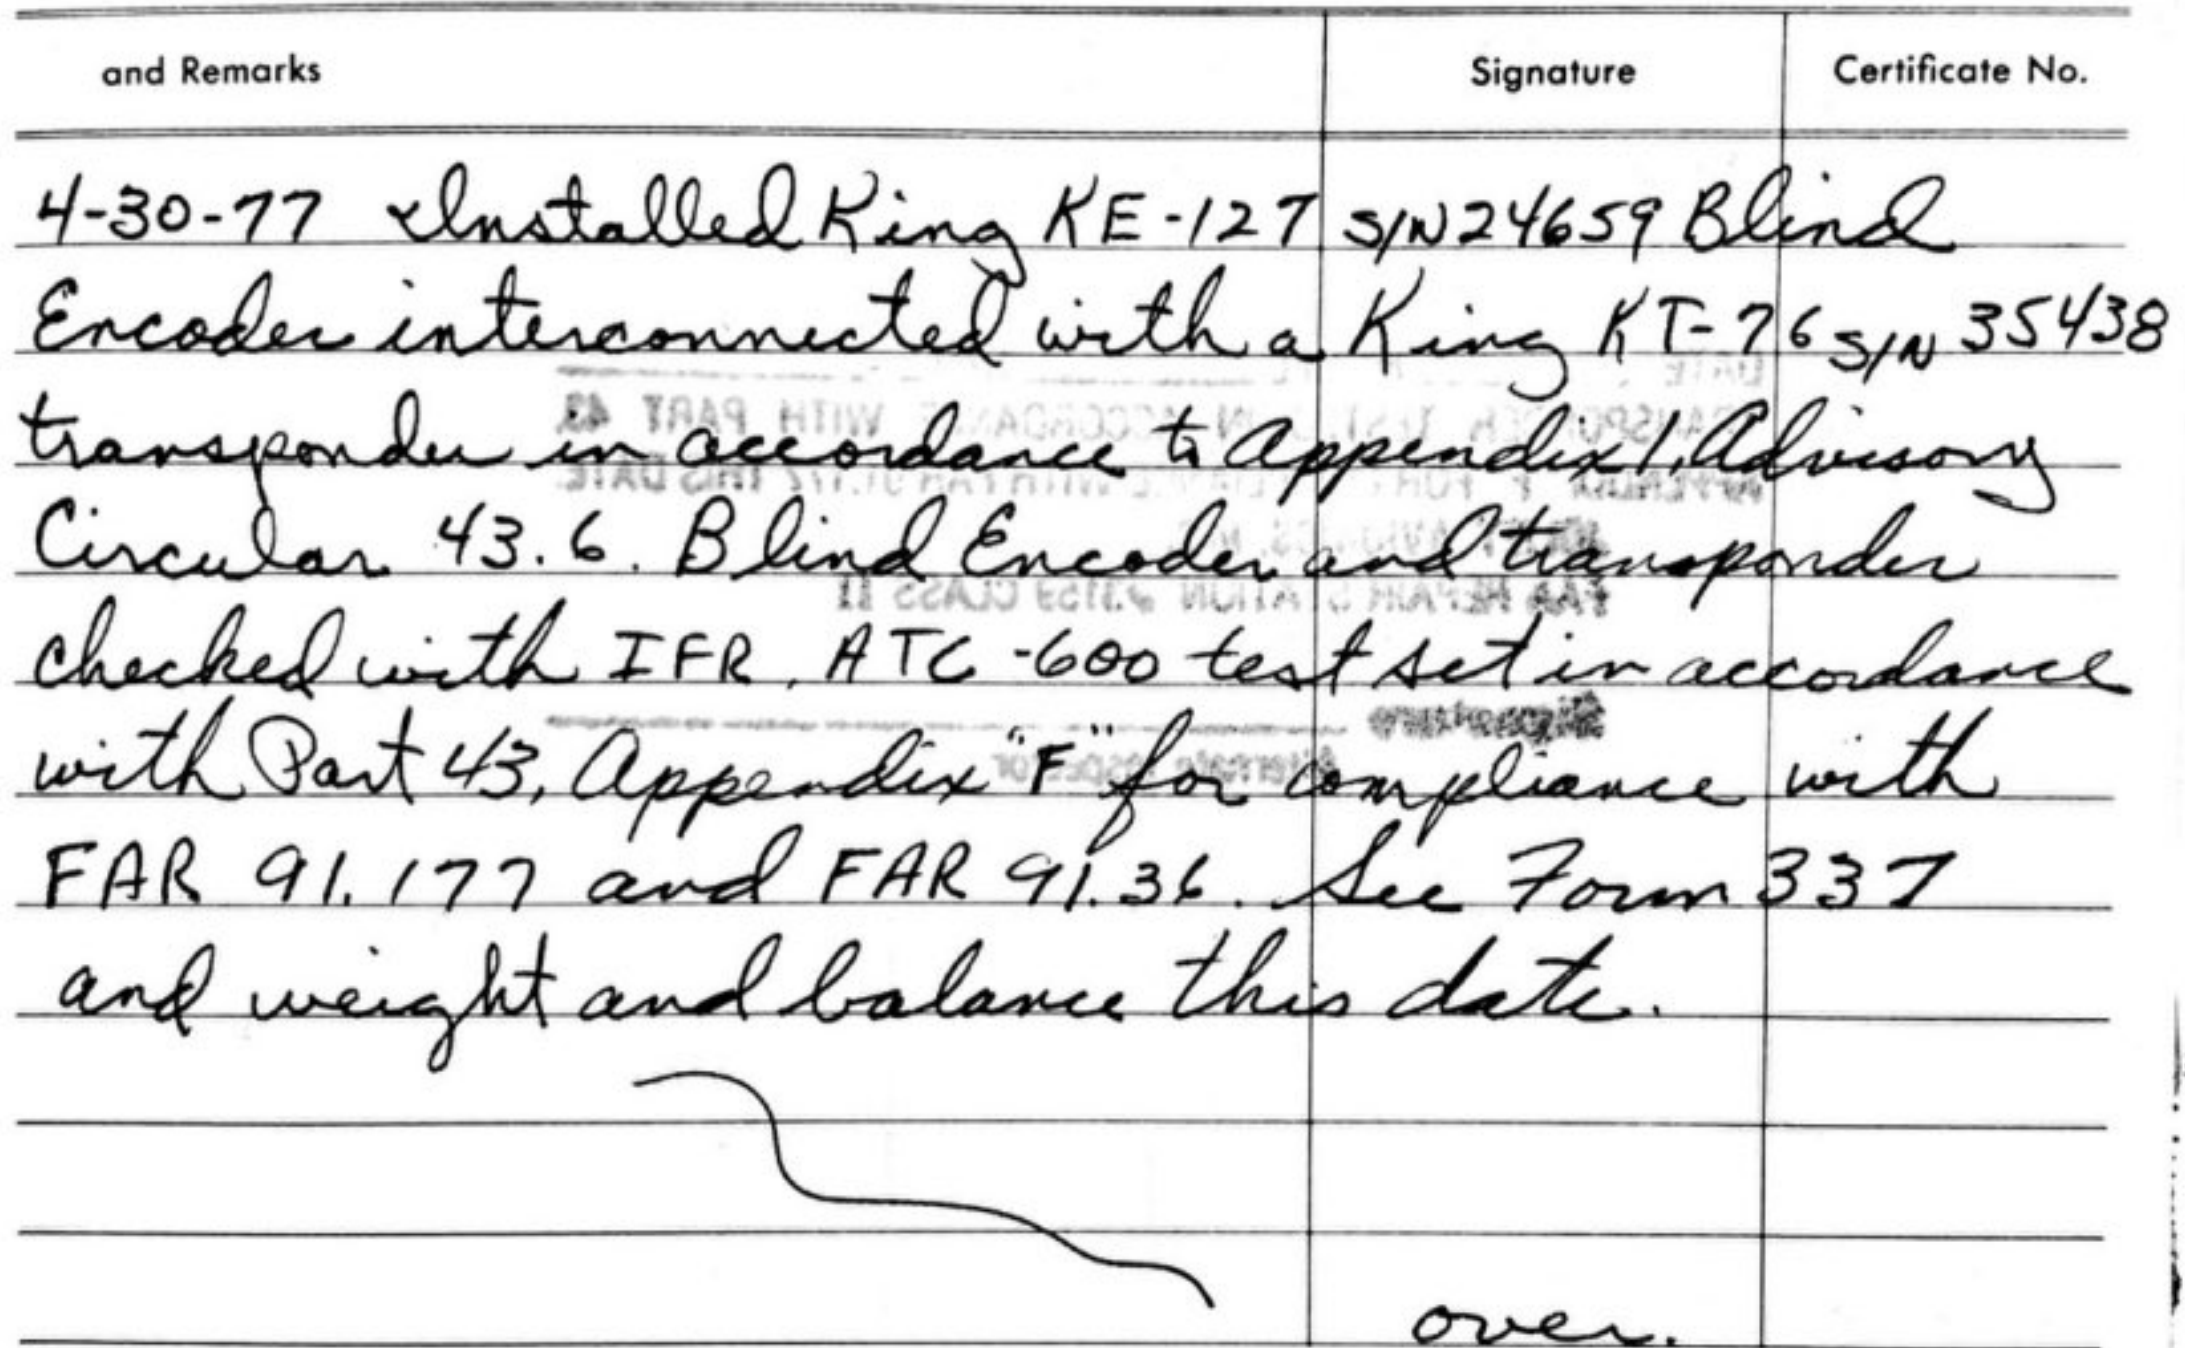 and Remarks Signature Certificate No.
4-30-77 Installed King KE-127 S/N 24659 Blind
Encoder interconnected with a King KT-76 S/N 35438
transponder in accordance to Appendix 1, Advisory
Circular 43.6. Blind Encoder and transponder
checked with IFR, ATC-600 test set in accordance
with Part 43, Appendix "F" for compliance with
FAR 91.177 and FAR 91.36. See Form 337
and weight and balance this date.
over.